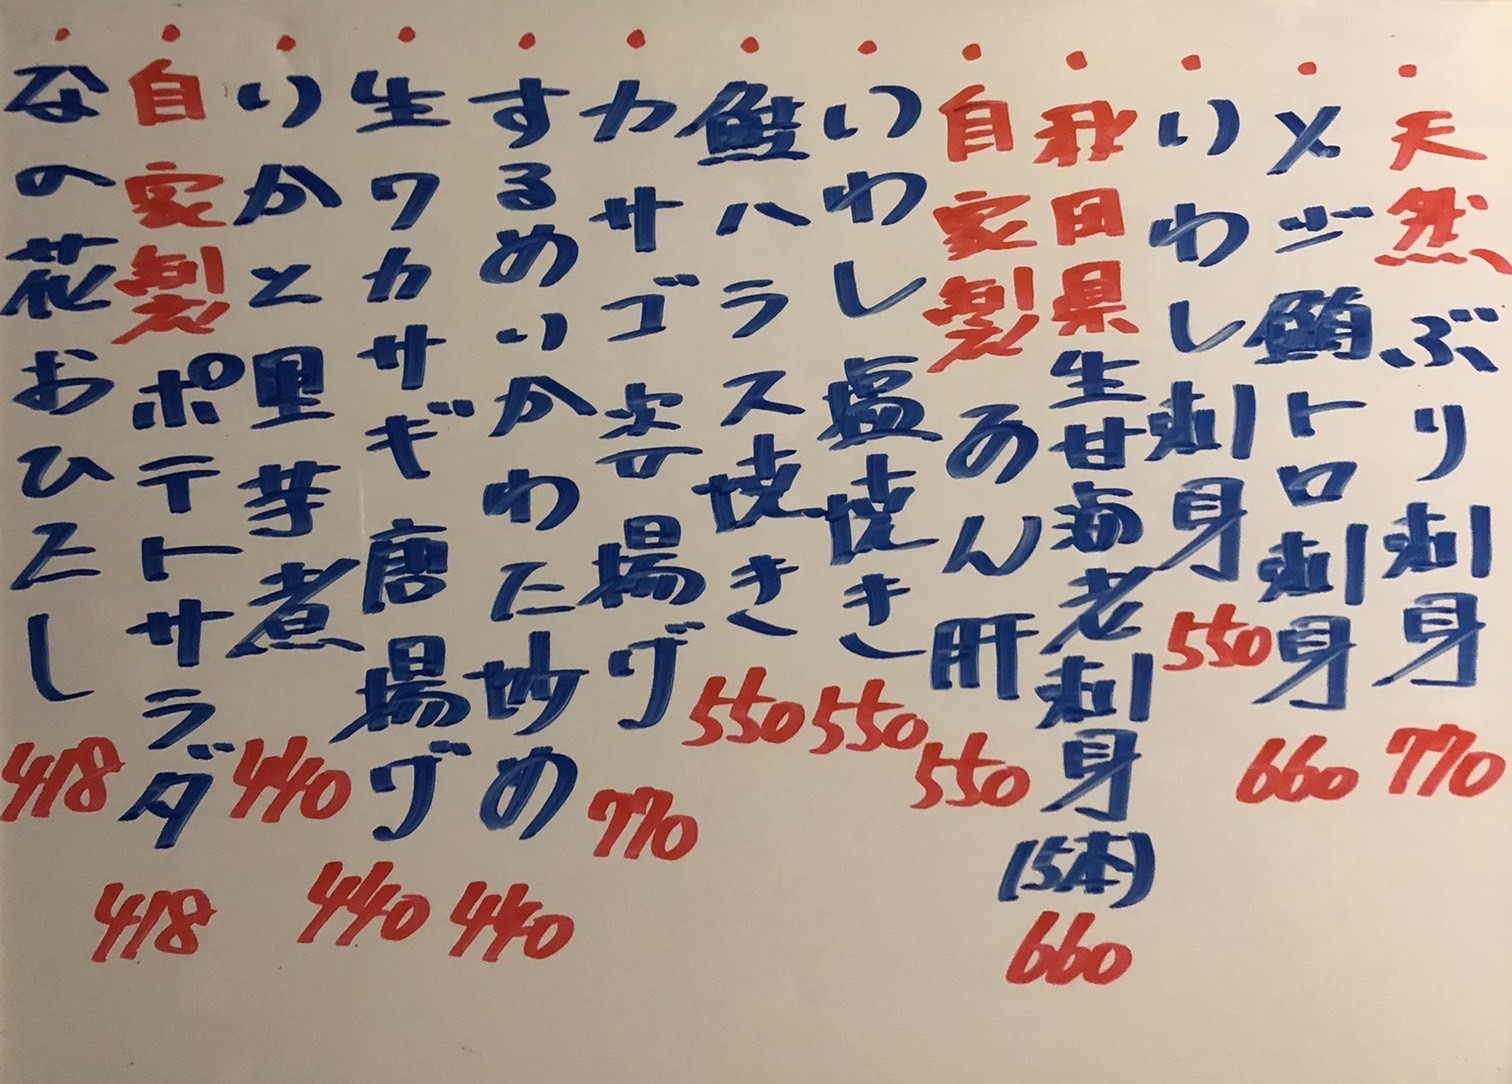 ・天然ぶり刺身 770
・メジ鮪トロ刺身 660
・いわし刺身 550
・秋田県生甘海老刺身(5本) 660
・自家製あん肝 550
・いわし塩焼き 550
・鮭ハラス焼き 550
・カサゴ姿揚げ 770
・するめいかわた炒め 440
・生ワカサギ唐揚げ 440
・いかと里芋煮 440
・自家製ポテトサラダ 418
・なの花おひたし 418